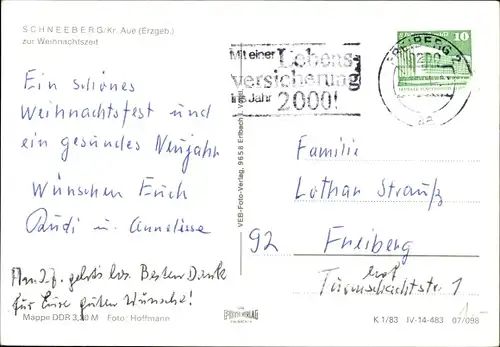 SCHNEEBERG/Kr. Aue (Erzgeb.)
zur Weihnachtszeit
Ein schönes
Weihnachtsfest und
ein gesundes Neujahr
Wünschen Euch
Rudi u. Anneliese
geht's los. Besten Dank
für Eure guten Wünsche!
Mappe DDR 3,30 M Foto: Hoffmann
VEB-Foto-Verlag, 9658 Erlbach i. Vogtl.
Mit einer Lebens-
versicherung
ins Jahr 2000!
FREIBERG 2
9200
10
Familie
Lothar Strauß
92 Freiberg
Turmschachtstr. 1
K 1/83 IV-14-483 07/098